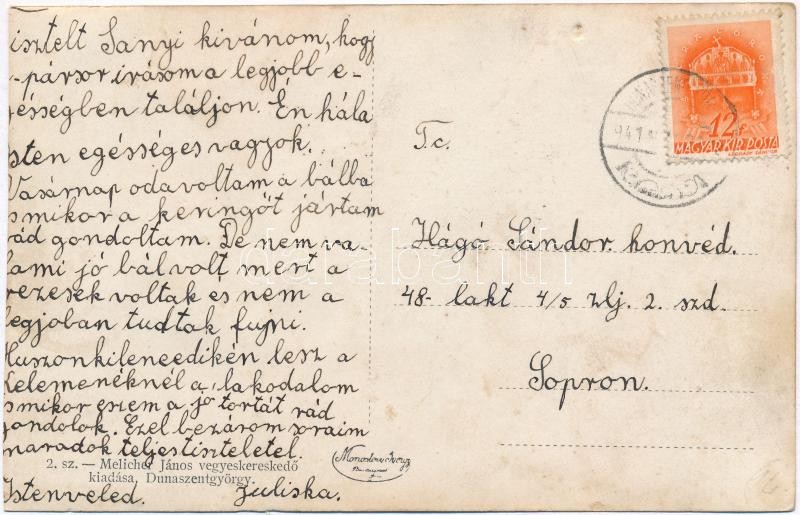 isztelt Sanyi kivánom, hogy
pársor irásom a legjobb e-
gésségben találjon. Én hála
sten egésséges vagyok.
Vasárnap oda voltam a bálba
s mikor a keringőt jártam
rád gondoltam. De nem va-
lami jó bál volt mert a
rezesek voltak és nem a
legjoban tudtak fujni.
Huszonkileneedikén lesz a
Kelemenéknél a lakodalom
s mikor eszem a jó tortát rád
gondolok. Ezel bezárom soraim
maradok teljes tisztelettel.
2. sz. — Melicher János vegyeskereskedő
kiadása, Dunaszentgyörgy.
Istenveled. Juliska.
12f
MAGYAR KIR. POSTA
941
T.c.
Hágó Sándor honvéd.
48- lakt 4/5 zlj. 2. szd.
Sopron.
darabanth